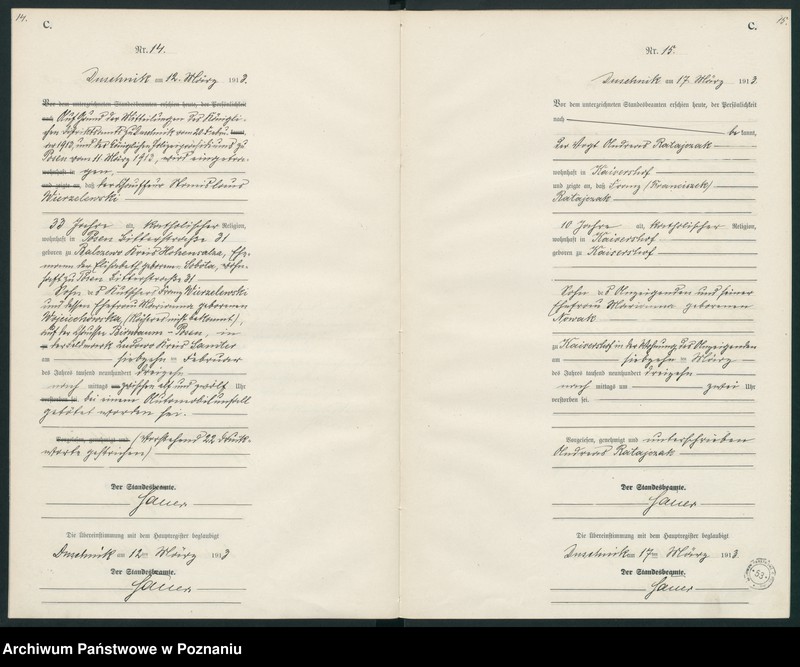 14.
C.
Nr. 14.
Duschnik am 12. März 1913.
Vor dem unterzeichneten Standesbeamten erschien heute, der Persönlichkeit
nach Auf Grund der Mitteilungen des Königli-
chen Distriktsamts Duschnik vom 28. Febru- kannt,
ar 1913, und des Königlichen Polizeipräsidiums zu
Posen vom 11. März 1913, wird eingetra-
wohnhaft in gen,
und zeigte an, daß der Chauffeur Stanislaus
Wierzelewski
33 Jahre alt, katholischer Religion,
wohnhaft in Posen Bitterstraße 31
geboren zu Kreis Hohensalza, Ehe-
mann der Elisabeth geborene Sobota, wohn-
haft zu Posen Bitterstraße 31
Sohn des Franz Wierzelewski
und dessen Ehefrau Marianna geborenen
Wojciechowska, (Näheres nicht bekannt),
auf der Chaussee Birnbaum - Posen, in
der Feldmark Kreis Samter
am siebzehn ten Februar
des Jahres tausend neunhundert dreizehn
nach mittags zwischen elf und zwölf Uhr
verstorben sei. bei einem Automobilunfall
getötet worden sei.
Vorgelesen, genehmigt und (Vorstehend 22 Druck-
worte gestrichen)
Der Standesbeamte.
Sauer
Die Übereinstimmung mit dem Hauptregister beglaubigt
Duschnik am 12ten März 1913
Der Standesbeamte.
Sauer
15.
C.
Nr. 15.
Duschnik am 17. März 1913.
Vor dem unterzeichneten Standesbeamten erschien heute, der Persönlichkeit
nach
be kannt,
der Vogt Andreas Ratajczak
wohnhaft in Kaisershof
und zeigte an, daß Franz (Franciszek)
Ratajczak
10 Jahre alt, katholischer Religion,
wohnhaft in Kaisershof
geboren zu Kaisershof
Sohn des Anzeigenden und seiner
Ehefrau Marianna geborenen
Nowak
zu Kaisershof in der Wohnung des Anzeigenden
am siebzehn ten März
des Jahres tausend neunhundert dreizehn
nach mittags um zwei Uhr
verstorben sei.
Vorgelesen, genehmigt und unterschrieben
Andreas Ratajczak
Der Standesbeamte.
Sauer
Die Übereinstimmung mit dem Hauptregister beglaubigt
Duschnik am 17ten März 1913.
Der Standesbeamte.
Sauer
53
Archiwum Państwowe w Poznaniu